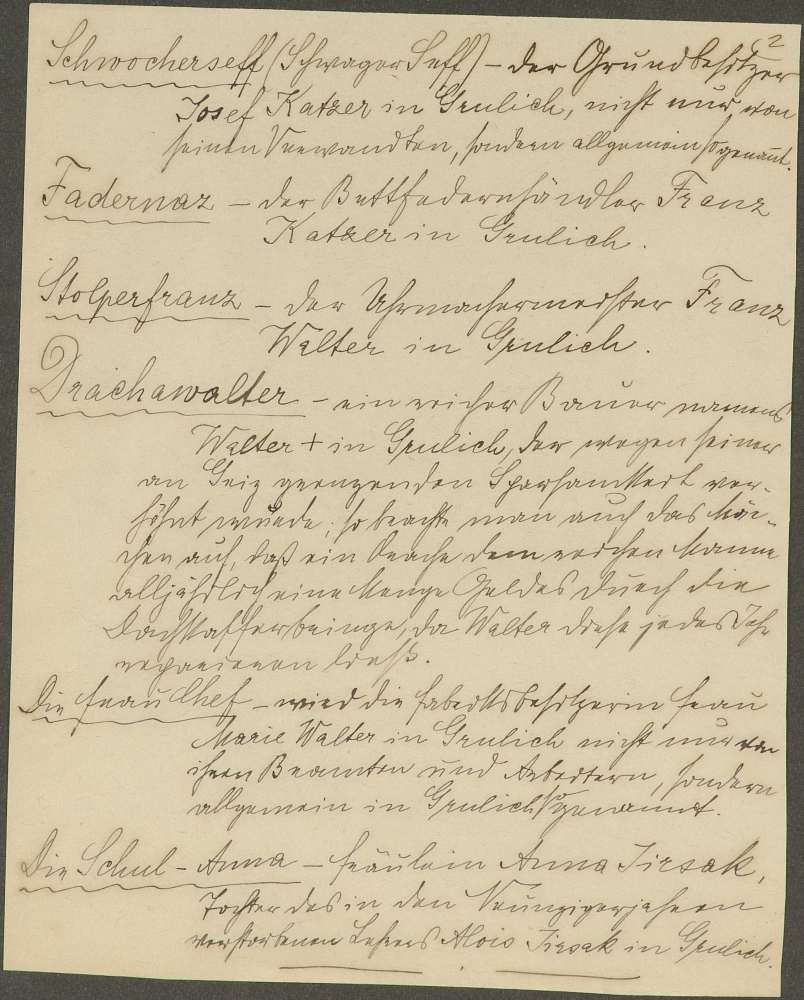 2
Schwocherseff (Schwager Seff) – der Grundbesitzer
Josef Katzer in Grulich, nicht nur von
seinen Verwandten, sondern allgemein so genannt.
Fadernaz – der Bettfedernhändler Franz
Katzer in Grulich.
Stolperfranz – der Uhrmachermeister Franz
Walter in Grulich.
Drachawalter – ein reicher Bauer namens
Walter + in Grulich, der wegen seiner
an Geiz grenzenden Sparsamkeit ver-
höhnt wurde; so brachte man auch das Mär-
chen auf, daß ein Drache dem reichen Manne
alljährlich eine Menge Geldes durch die
Dach brächte, da Walter diese jedes Jahr
reparieren ließ.
Die Frau Chef – wird die Fabriksbesitzerin Frau
Marie Walter in Grulich nicht nur von
ihren Beamten und Arbeitern, sondern
allgemein in Grulich so genannt.
Die Schul-Anna – Fräulein Anna Jirsak,
Tochter des in den Neunzigerjahren
verstorbenen Lehrers Alois Jirsak in Grulich.